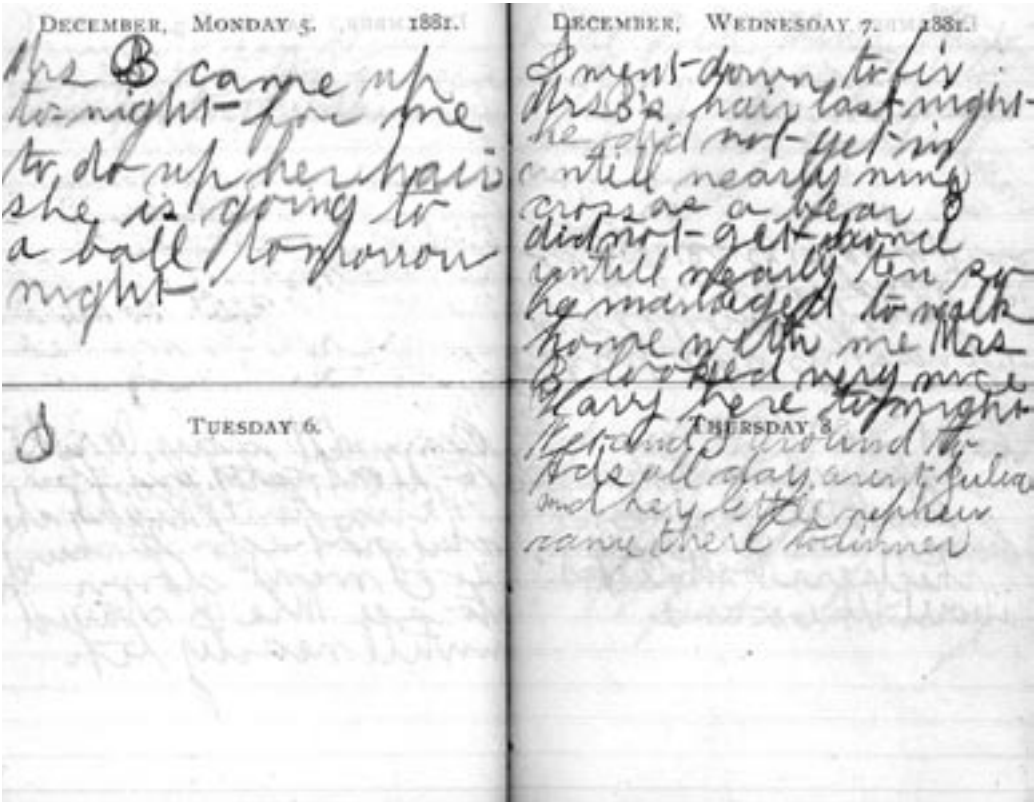 DECEMBER, MONDAY 5. 1881.
Mrs B came up
to-night for me
to do up her hair
she is going to
a ball tomorrow
night
TUESDAY 6.
I
DECEMBER, WEDNESDAY 7. 1881.
I went down to fix
Mrs B's hair last night
he did not get in
untill nearly nine
cross as a bear I
did not get done
untill nearly ten so
he managed to walk
home with me Mrs
B looked very nice
Harry here tonight
THURSDAY 8.
and I around to
Ads all day aunt Julia
and her little nephew
came there to dinner